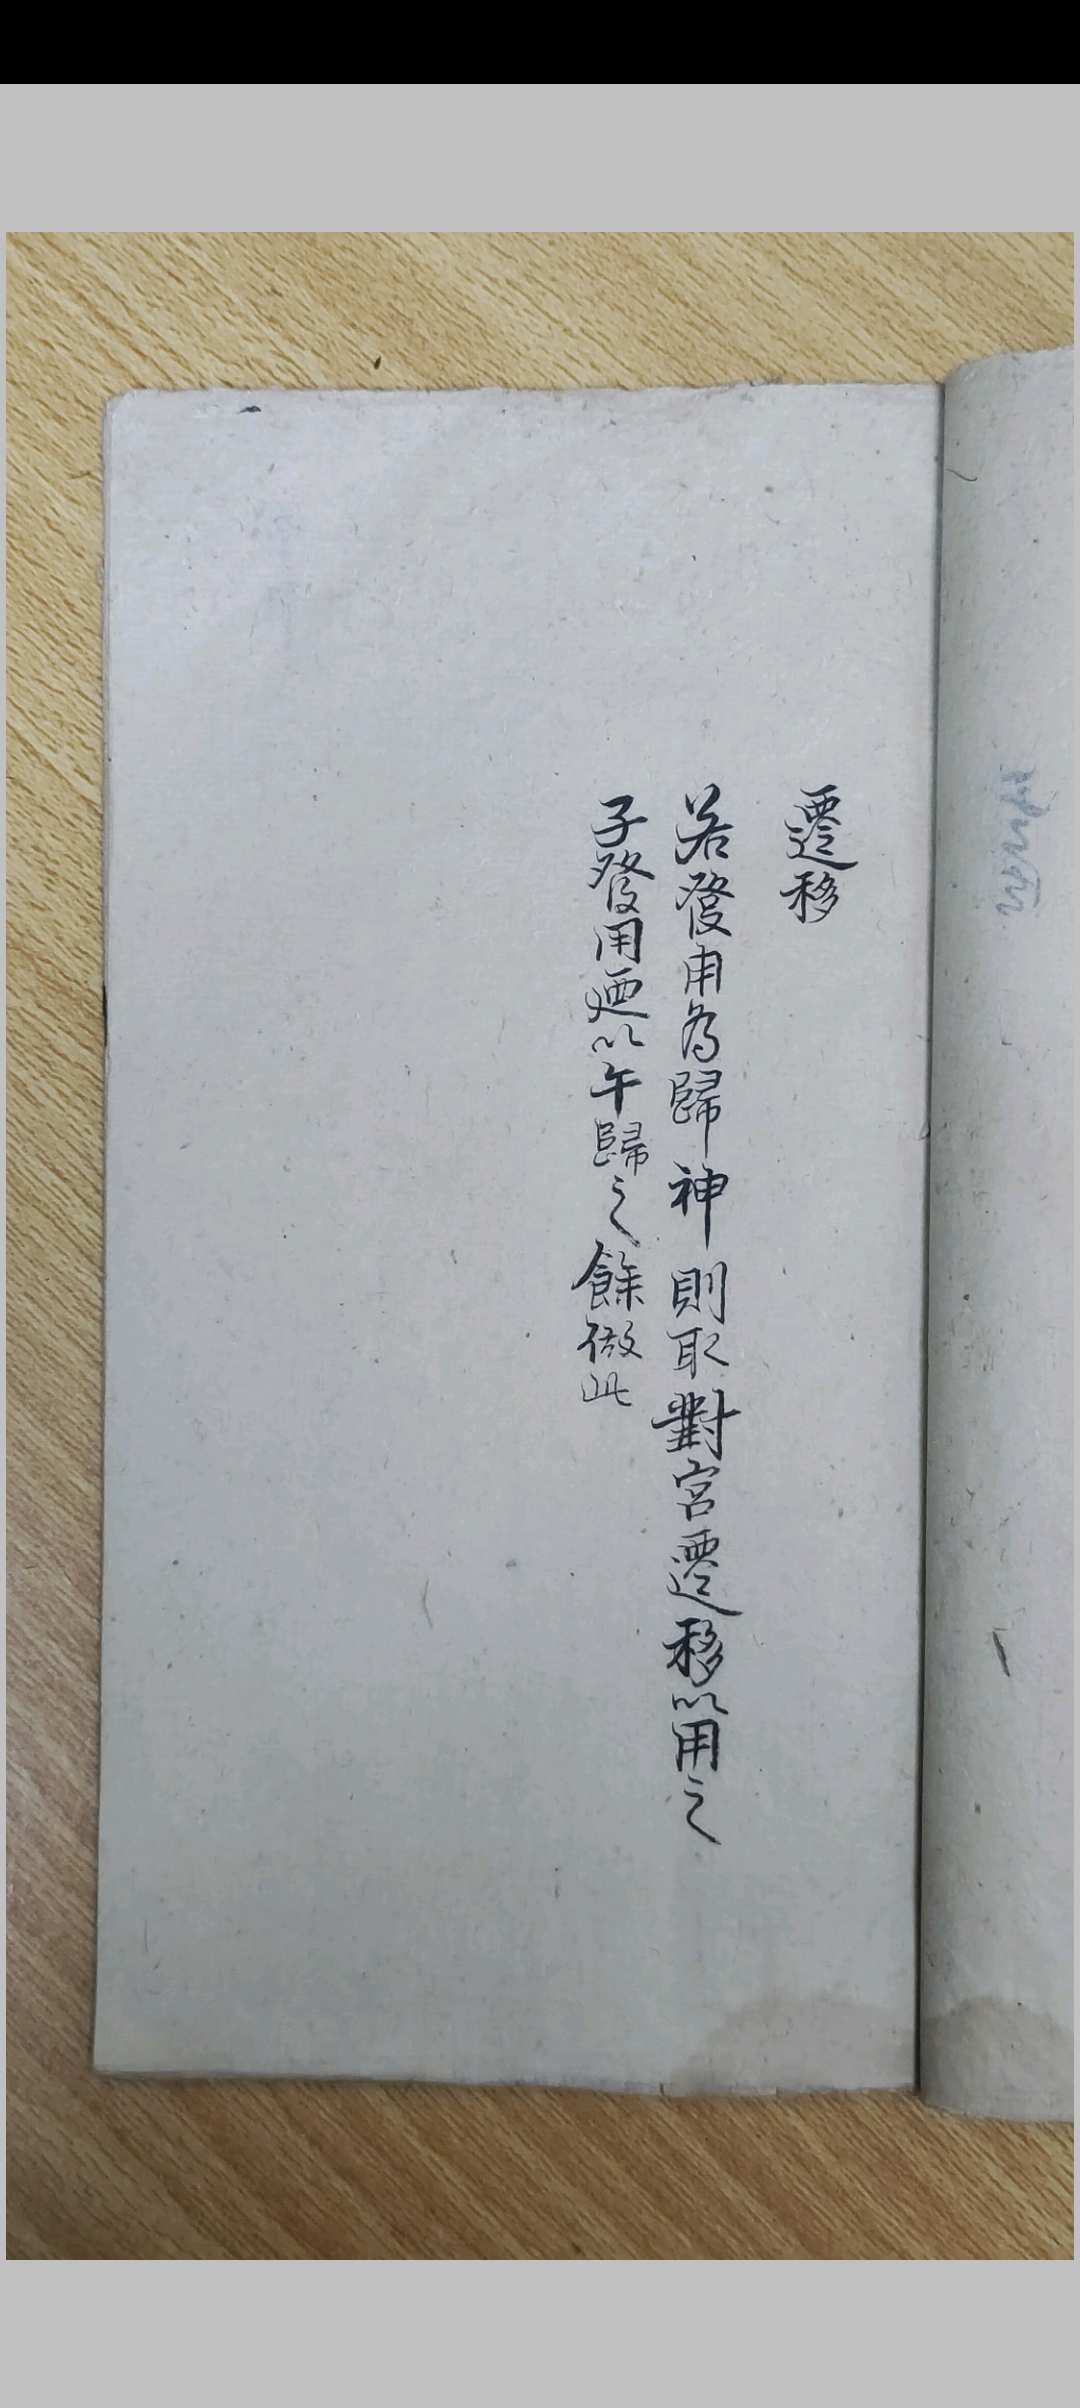 遷移
若發用為歸神則取對宮遷移以用之
子發用廼以午歸之餘倣此